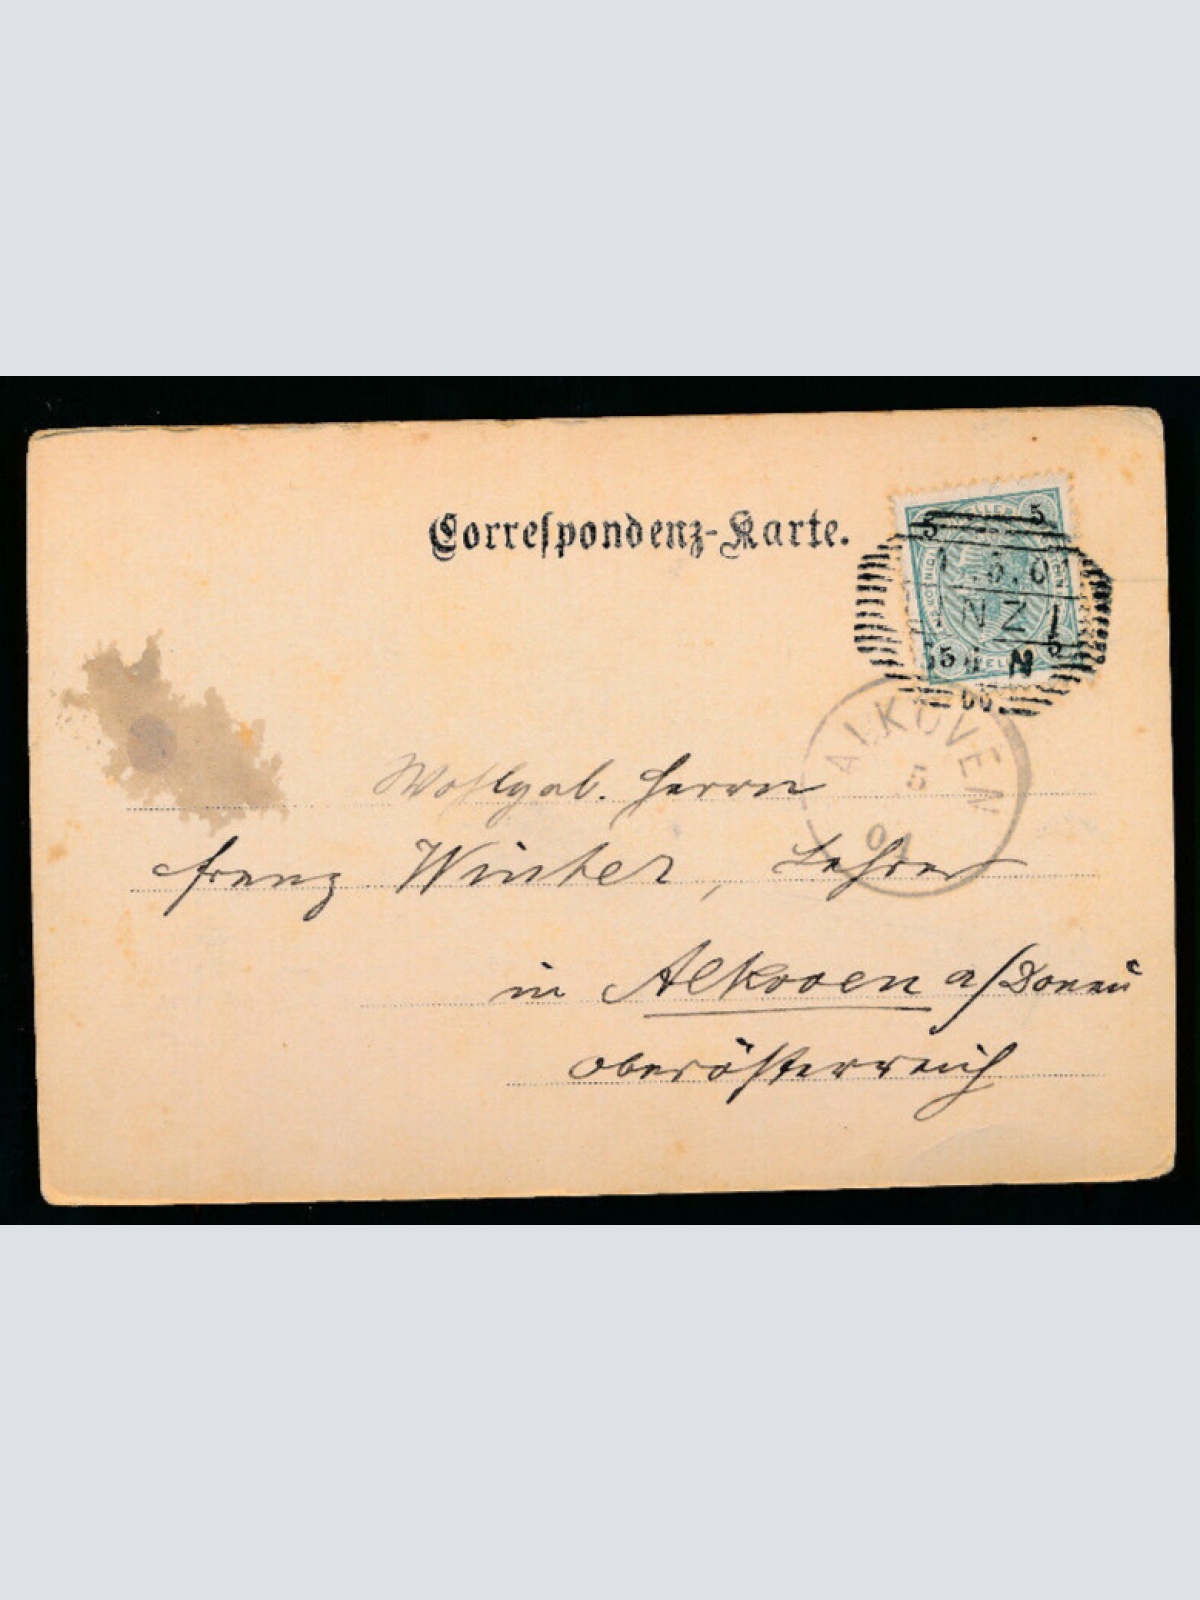 Correspondenz-Karte.
5 5
.5.0
INZ 1
5 5
N
ALKOVEN
5
01
Wohlgeb. Herrn
Franz Winter, Lehrer
in Alkoven a/Donau
Oberösterreich